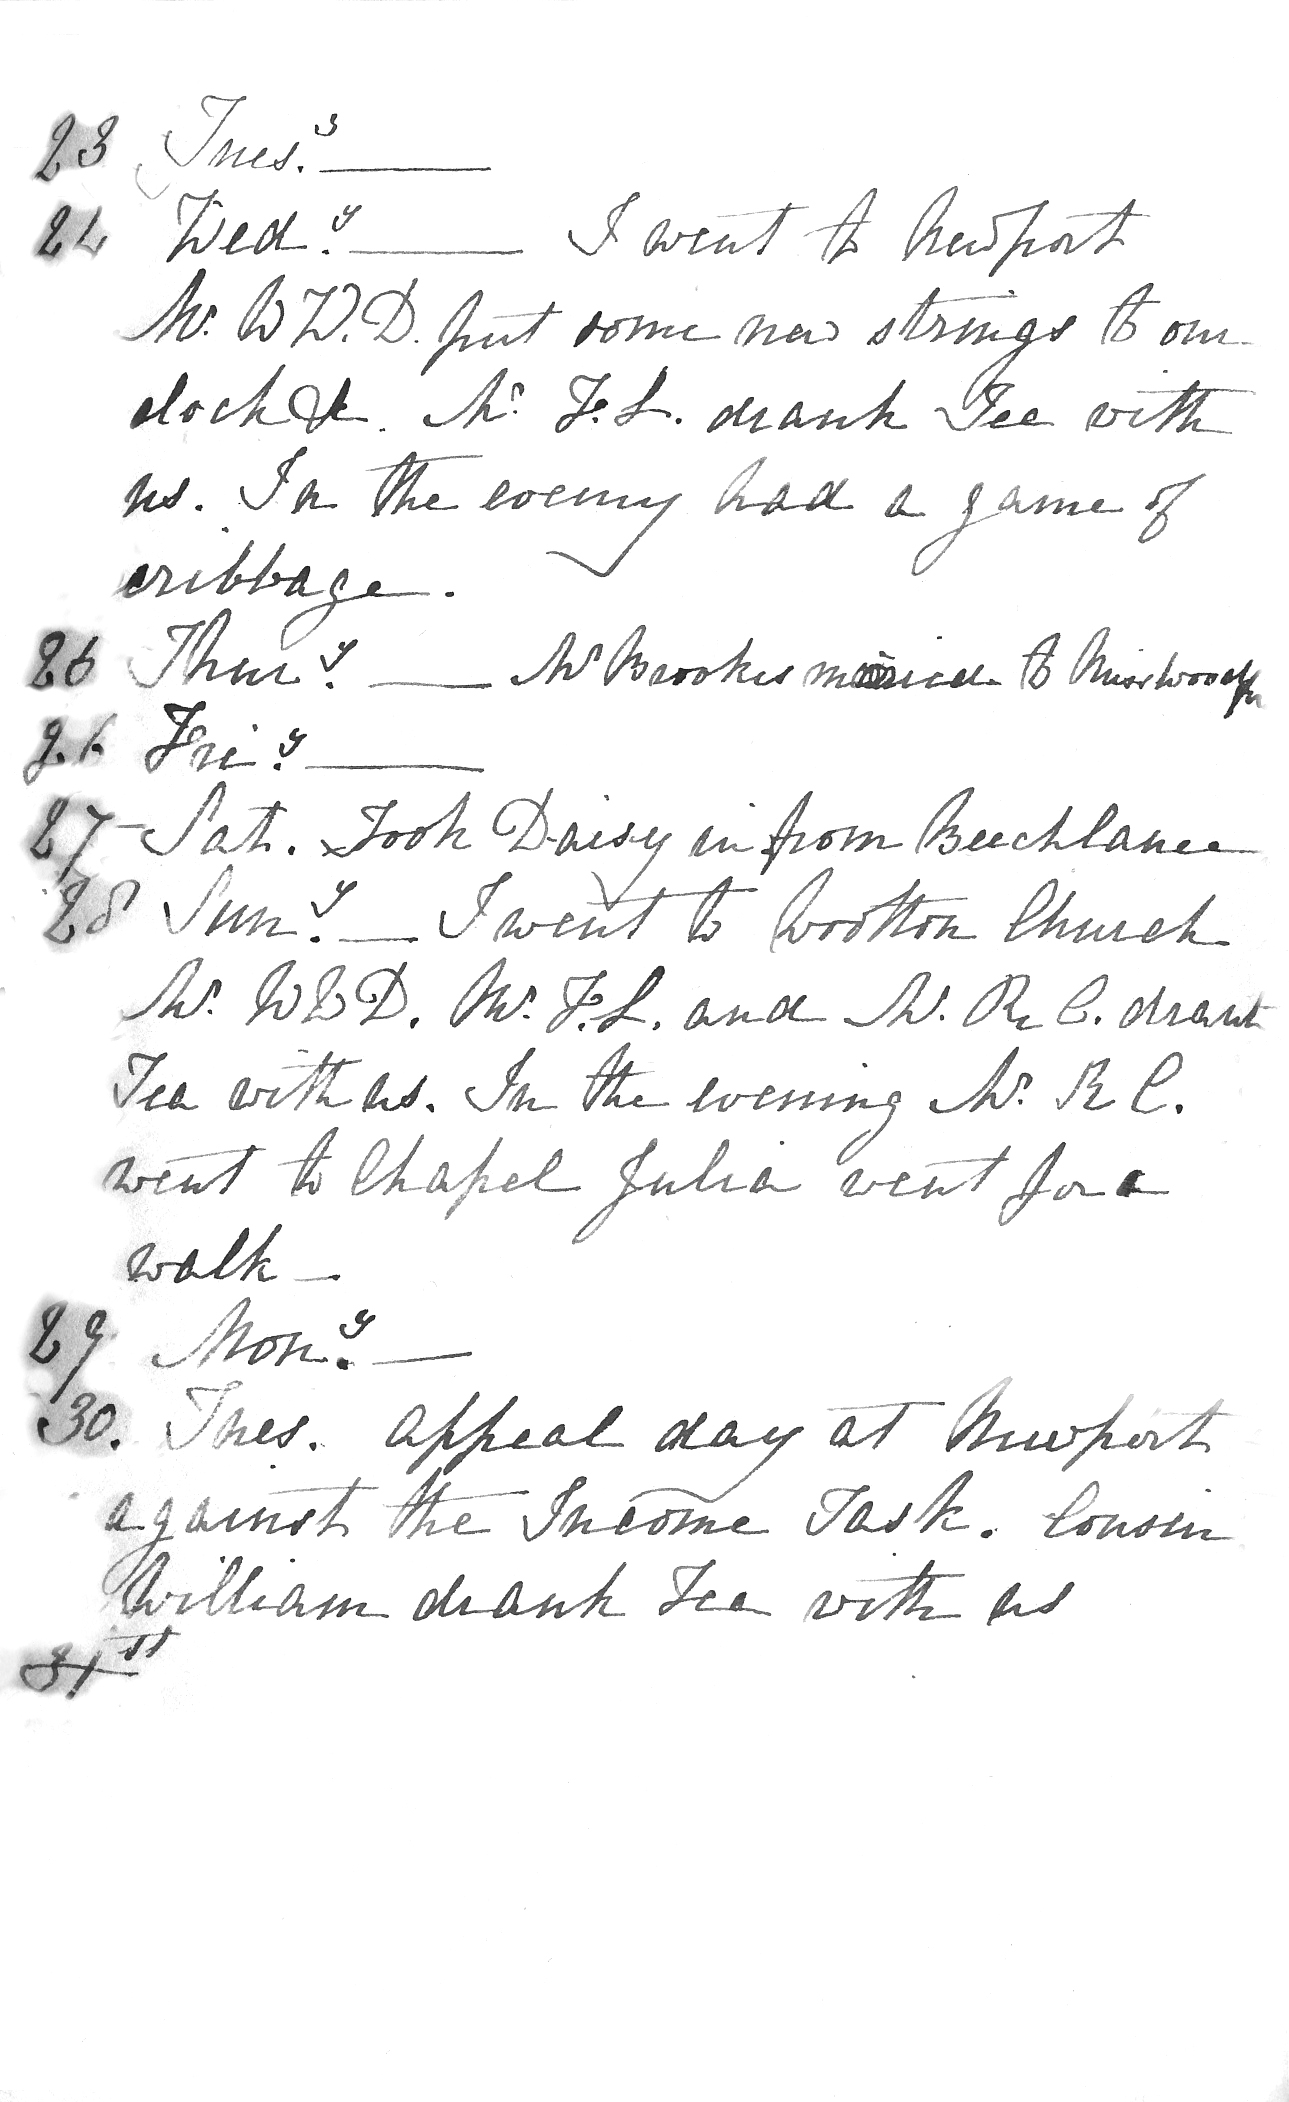 23 Tues.y
24 Wed.y I went to Newport
Mr. W W. D. put some new strings to our
clock &c. Mr. F. L. drank Tea with
us. In the evening had a game of
cribbage.
25 Thur.y Mr Brookes married to Miss
26 Fri.y
27 Sat. Took Daisy in from Beechlane
28 Sun.y I went to Wootton Church
Mr. W W D. Mr. F. L. and Mr. R C. drank
Tea with us. In the evening Mr. R C.
went to Chapel Julia went for a
walk
29 Mon.y
30. Tues. Appeal day at Newport
against the Income Task. Cousin
William drank Tea with us
31st